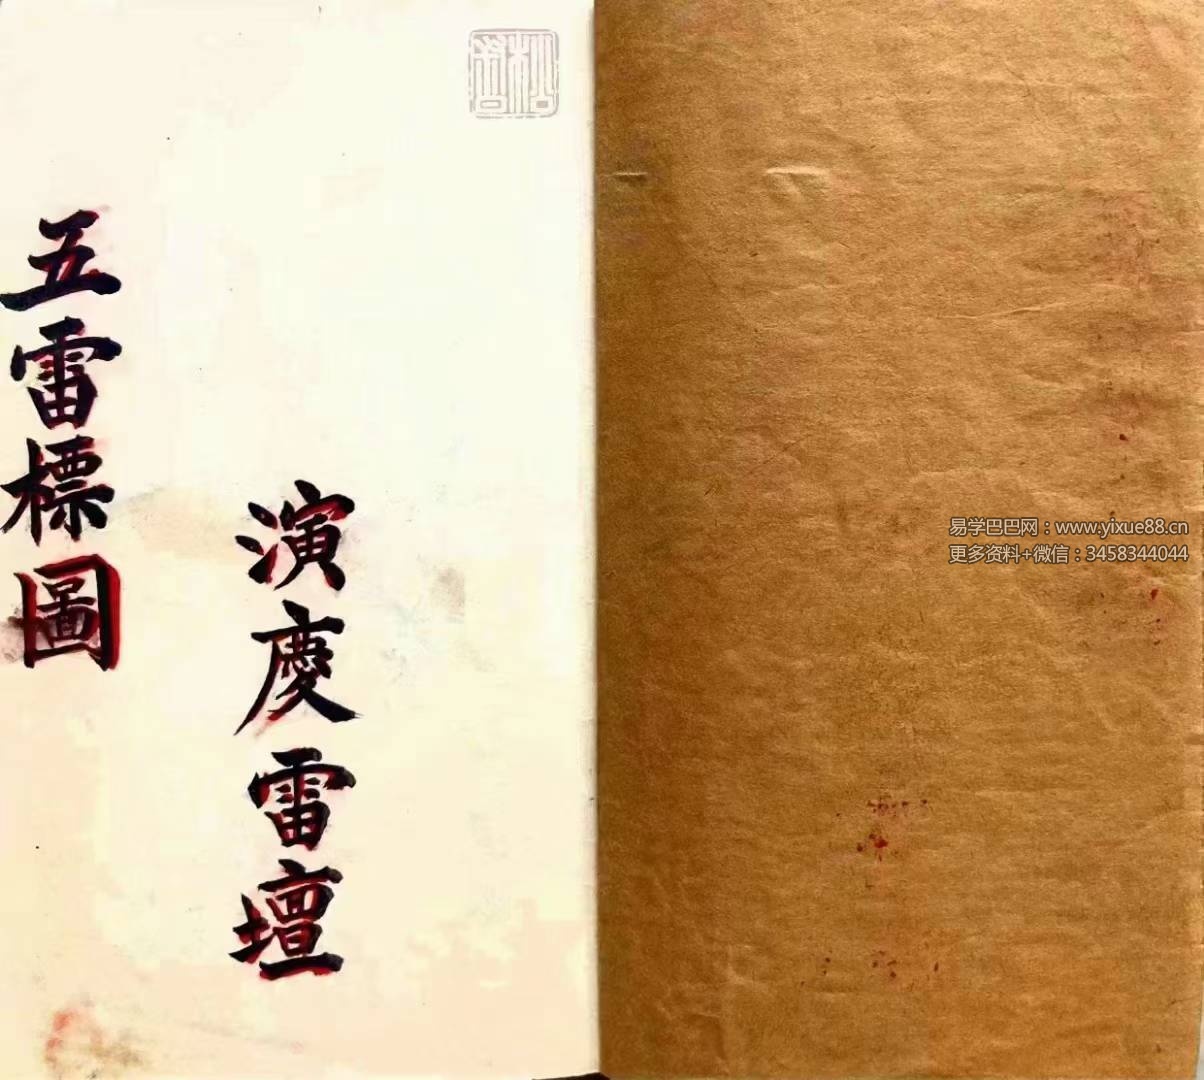 演慶雷壇
五雷標圖
易学巴巴网：www.yixue88.cn
更多资料+微信：3458344044